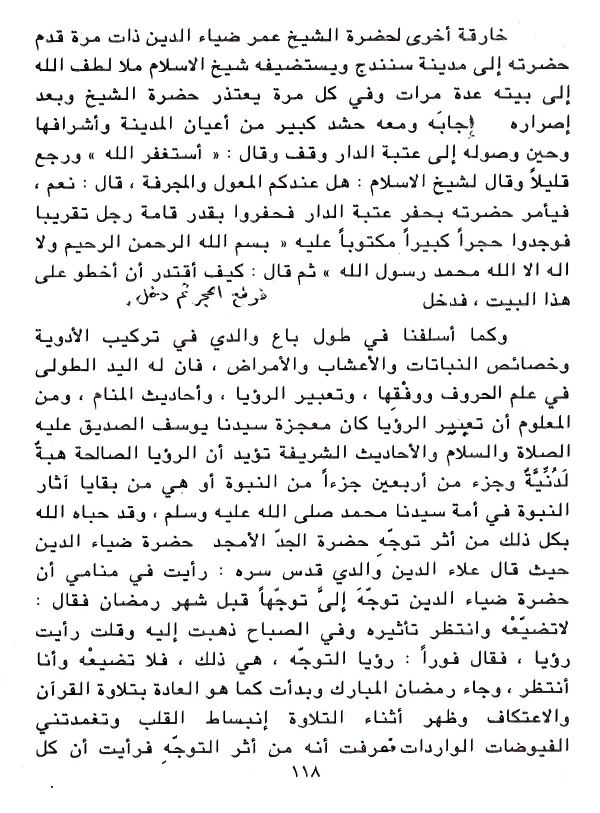 خارقة أخرى لحضرة الشيخ عمر ضياء الدين ذات مرة قدم
حضرته إلى مدينة سنندج ويستضيفه شيخ الاسلام ملا لطف الله
إلى بيته عدة مرات وفي كل مرة يعتذر حضرة الشيخ وبعد
إصراره إجابَه ومعه حشد كبير من أعيان المدينة وأشرافها
وحين وصوله إلى عتبة الدار وقف وقال : « أستغفر الله » ورجع
قليلاً وقال لشيخ الاسلام : هل عندكم المعول والمجرفة ، قال : نعم ،
فيأمر حضرته بحفر عتبة الدار فحفروا بقدر قامة رجل تقريبا
فوجدوا حجراً كبيراً مكتوباً عليه « بسم الله الرحمن الرحيم ولا
اله الا الله محمد رسول الله » ثم قال : كيف أقتدر أن أخطو على
هذا البيت ، فدخل فرفع الحجر ثم دخل .
وكما أسلفنا في طول باع والدي في تركيب الأدوية
وخصائص النباتات والأعشاب والأمراض ، فان له اليد الطولى
في علم الحروف ووفْقِها ، وتعبير الرؤيا ، وأحاديث المنام ، ومن
المعلوم أن تعبير الرؤيا كان معجزة سيدنا يوسف الصديق عليه
الصلاة والسلام والأحاديث الشريفة تؤيد أن الرؤيا الصالحة هبةٌ
لَدُنِّيَّةٌ وجزء من أربعين جزءاً من النبوة أو هي من بقايا آثار
النبوة في أمة سيدنا محمد صلى الله عليه وسلم ، وقد حباه الله
بكل ذلك من أثر توجّهِ حضرة الجدّ الأمجد حضرة ضياء الدين
حيث قال علاء الدين والدي قدس سره : رأيت في منامي أن
حضرة ضياء الدين توجّهَ إليَّ توجّهاً قبل شهر رمضان فقال :
لاتضيّعْه وانتظر تأثيره وفي الصباح ذهبت إليه وقلت رأيت
رؤيا ، فقال فوراً : رؤيا التوجّه ، هي ذلك ، فلا تضيعْه وأنا
أنتظر ، وجاء رمضان المبارك وبدأت كما هو العادة بتلاوة القرآن
والاعتكاف وظهر أثناء التلاوة إنبساط القلب وتغمدتني
الفيوضات الواردات فعرفت أنه من أثر التوجّهِ فرأيت أن كل
١١٨